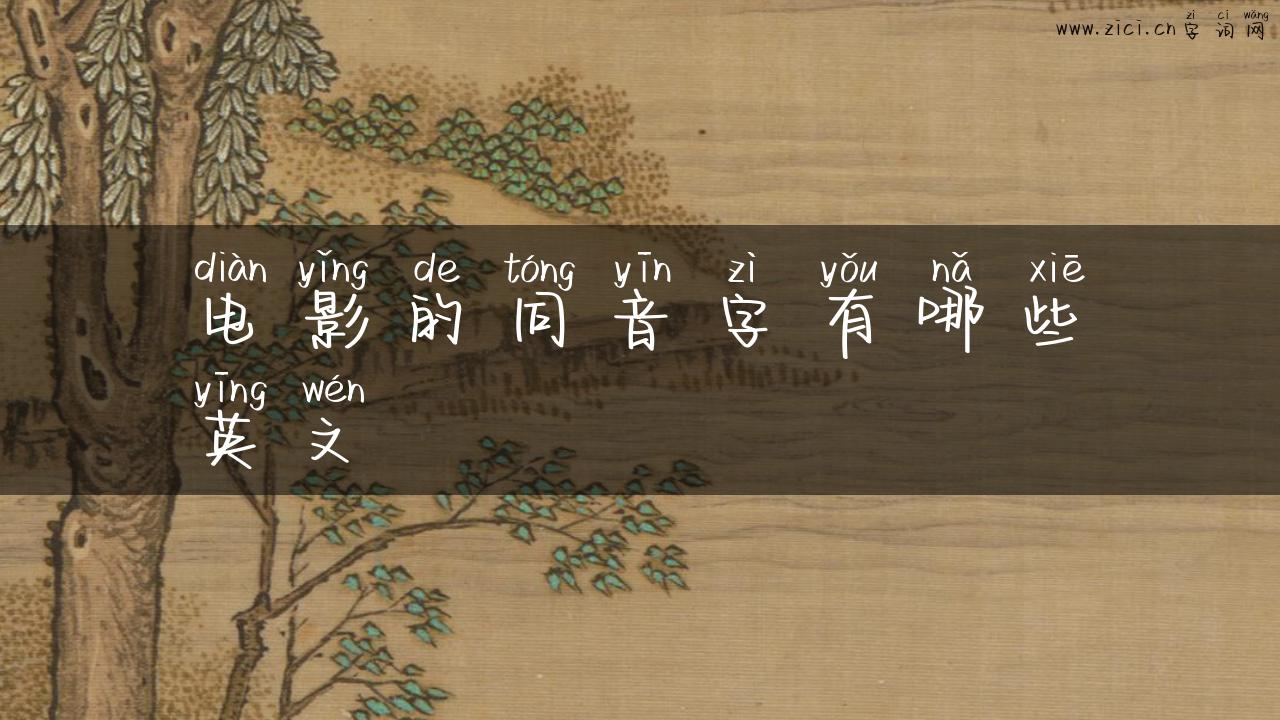 zì cí wǎng
www.zici.cn 字词网
diàn yǐng de tóng yīn zì yǒu nǎ xiē
电影的同音字有哪些
yīng wén
英文